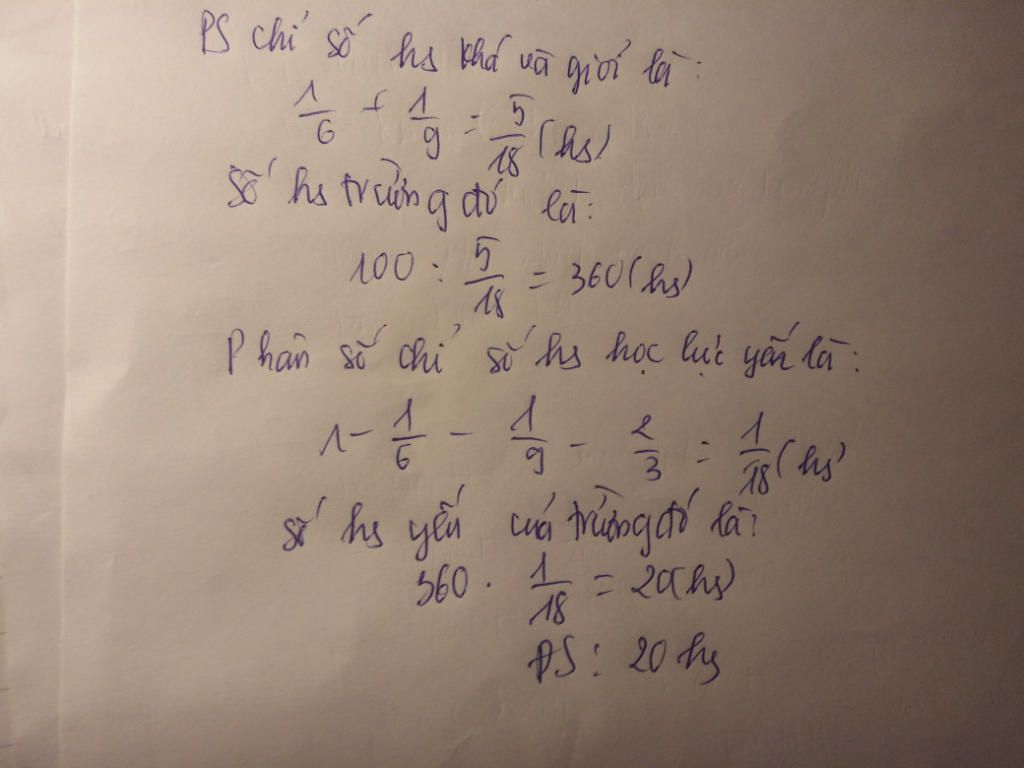 PS chỉ số hs khá và giỏi là:
1/6 + 1/9 = 5/18 (hs)
Số hs trường đó là:
100 : 5/18 = 360 (hs)
Phân số chỉ số hs học lực yếu là:
1 - 1/6 - 1/9 - 2/3 = 1/18 (hs)
số hs yếu của trường đó là:
360 . 1/18 = 20(hs)
ĐS: 20 hs